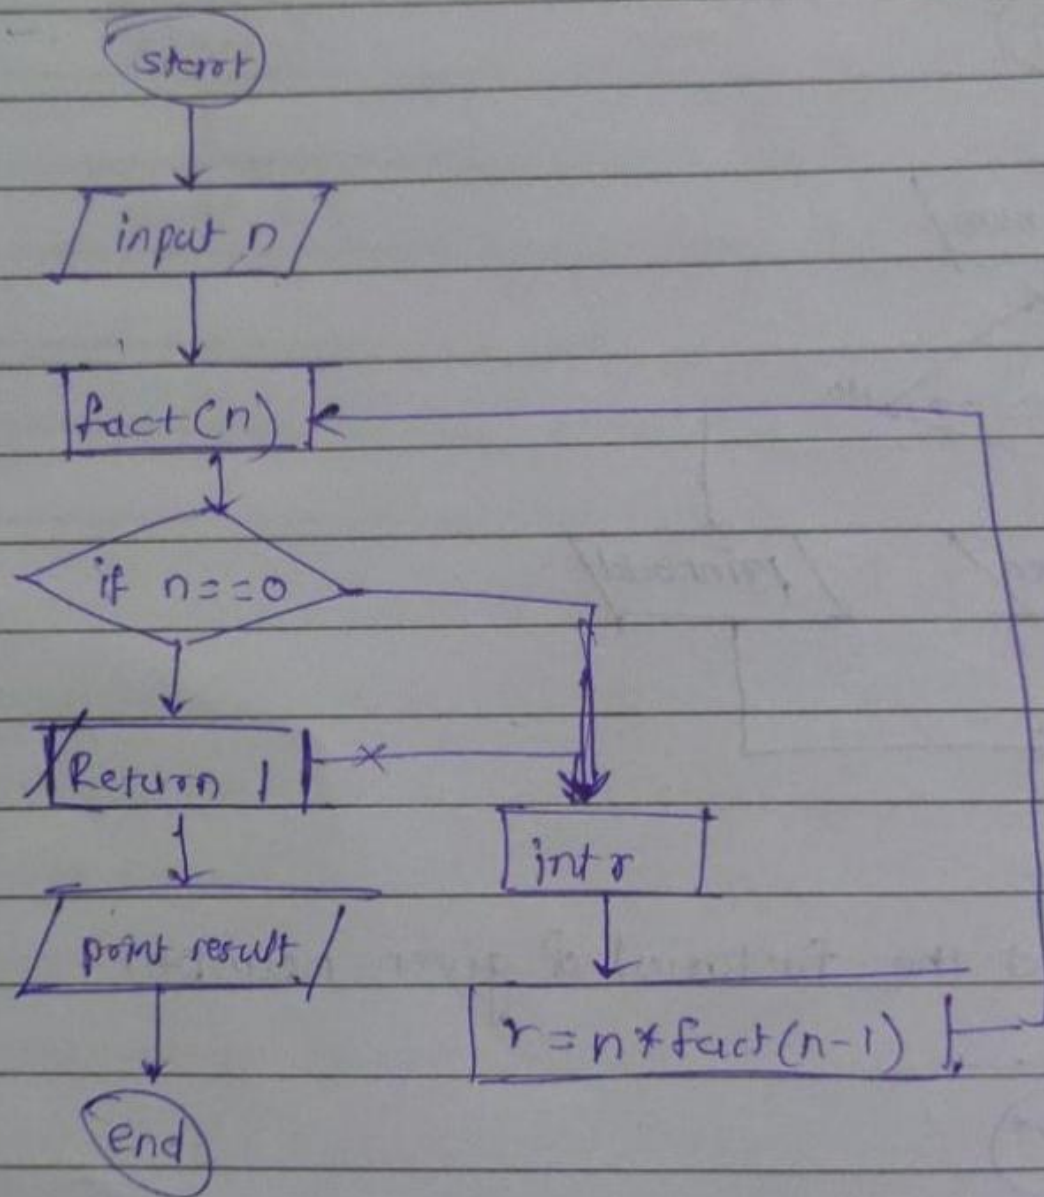 start
input n
fact(n)
if n==0
Return 1
int r
print result
r = n*fact(n-1)
end